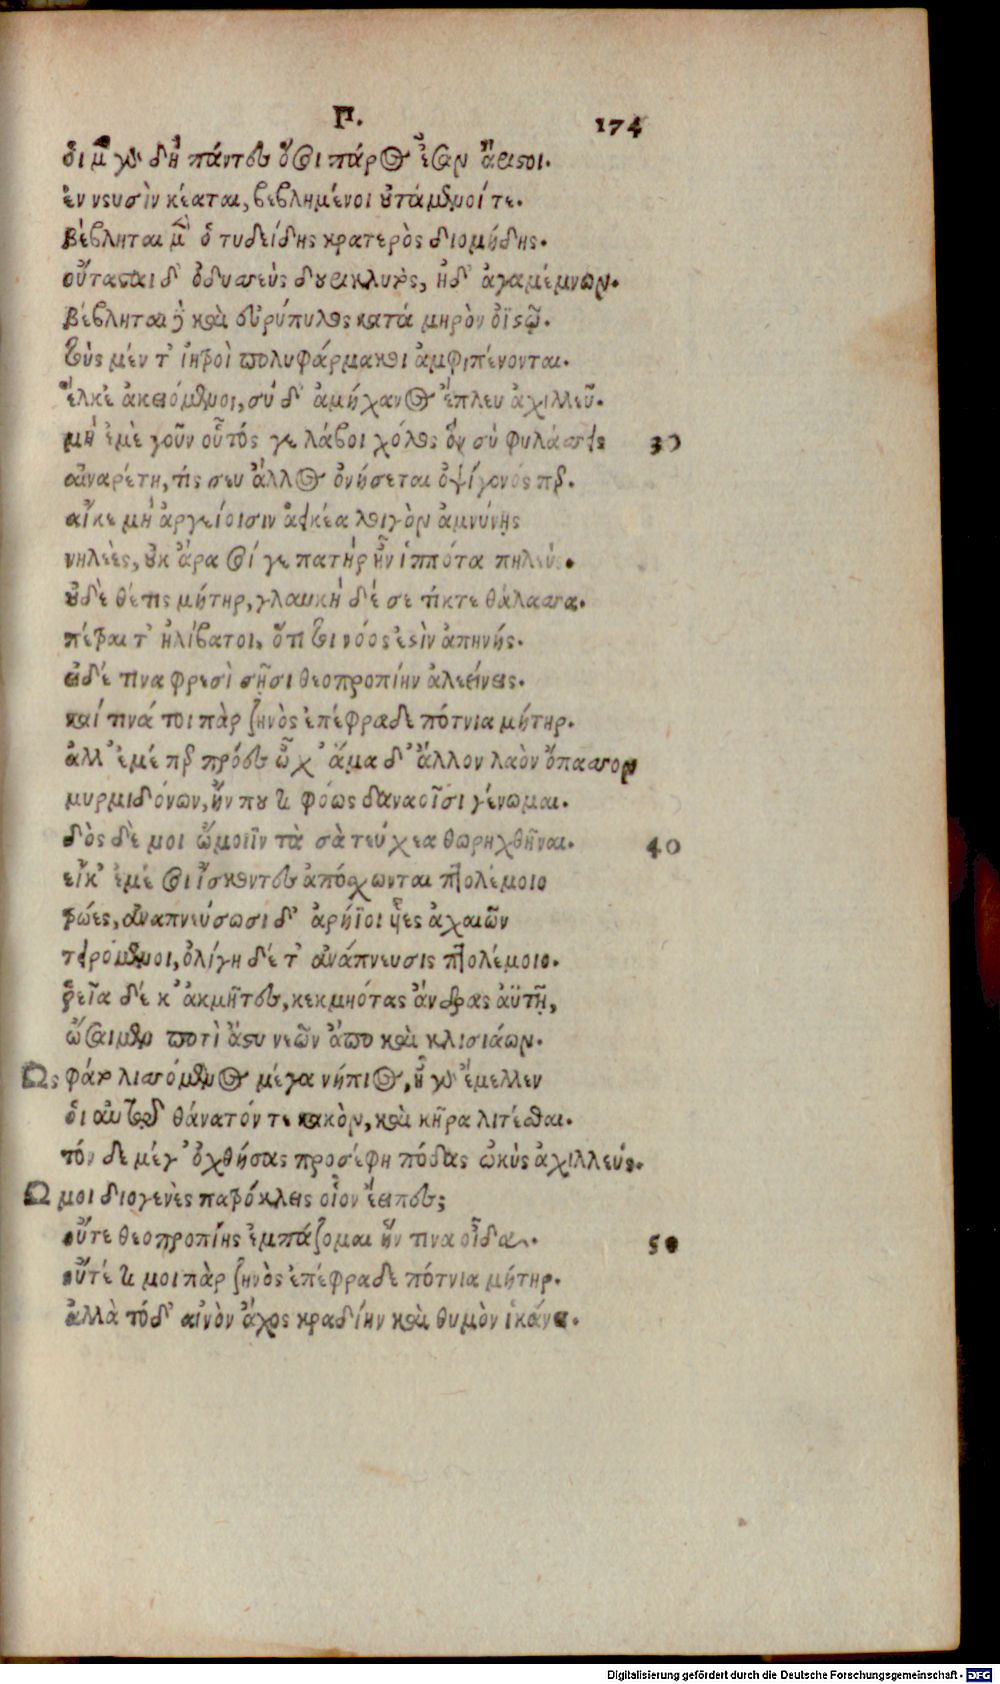 Π. 174
οἱ μὲν γὰρ δὴ πάντες ὅσοι πάρος ἦσαν ἄριστοι.
ἐν νευσὶν κέαται, βεβλημένοι οὐτάμενοί τε.
βέβληται μὲν ὁ τυδείδης κρατερὸς διομήδης.
οὔτασται δ' ὀδυσσεὺς δουρικλυτὸς, ἠδ' ἀγαμέμνων.
βέβληται δὲ καὶ εὐρύπυλος κατά μηρὸν ὀϊστῷ.
τοὺς μέν τ' ἰητροὶ πολυφάρμακοι ἀμφιπένονται.
ἕλκε' ἀκειόμενοι, σύ δ' ἀμήχανος ἔπλευ ἀχιλλεῦ.
μὴ ἐμὲ γοῦν οὗτός γε λάβοι χόλος ὃν σὺ φυλάσσεις 30
αἰναρέτη, τίς σευ ἄλλος ὀνήσεται ὀψίγονός περ.
αἴκε μὴ ἀργείοισιν ἀεικέα λοιγὸν ἀμυνύνῃς
νηλεὲς, οὐκ ἄρα σοί γε πατὴρ ἦν ἱππότα πηλεύς.
οὐδὲ θέτις μήτηρ, γλαυκὴ δέ σε τίκτε θάλασσα.
πέτραι τ' ἠλίβατοι, ὅτι τοι νόος ἐστὶν ἀπηνής.
εἰδέ τινα φρεσὶ σῇσι θεοπροπίην ἀλεείνεις.
καί τινά τοι πὰρ ζηνὸς ἐπέφραδε πότνια μήτηρ.
ἀλλ' ἐμέ περ πρόες ὦχ' ἅμα δ' ἄλλον λαὸν ὄπασσον
μυρμιδόνων, ἤν που τι φόως δαναοῖσι γένωμαι.
δὸς δὲ μοι ὤμοιϊν τὰ σὰ τεύχεα θωρηχθῆναι. 40
εἴκ' ἐμέ σοι ἴσκοντες ἀπόσχωνται πτολέμοιο
τρῶες, ἀναπνεύσωσι δ' ἀρήϊοι υἷες ἀχαιῶν
τειρόμενοι, ὀλίγη δέ τ' ἀνάπνευσις πτολέμοιο.
ῥεῖα δέ κ' ἀκμῆτες, κεκμηότας ἄνδρας ἀϋτῇ,
ὤσαιμεν ποτὶ ἄστυ νεῶν ἄπο καὶ κλισιάων.
Ως φάτο λισσόμενος μέγα νήπιος, ἦ γὰρ ἔμελλεν
οἷ αὐτῷ θάνατόν τε κακὸν, καὶ κῆρα λιτέσθαι.
τόν δε μέγ' ὀχθήσας προσέφη πόδας ὠκὺς ἀχιλλεύς.
Ω μοι διογενὲς πατρόκλεις οἷον ἔειπες;
οὔτε θεοπροπίης ἐμπάζομαι ἥν τινα οἶδα. 50
οὔτέ τι μοι πὰρ ζηνὸς ἐπέφραδε πότνια μήτηρ.
ἀλλὰ τόδ' αἰνὸν ἄχος κραδίην καὶ θυμὸν ἱκάνει.
Digitalisierung gefördert durch die Deutsche Forschungsgemeinschaft - DFG